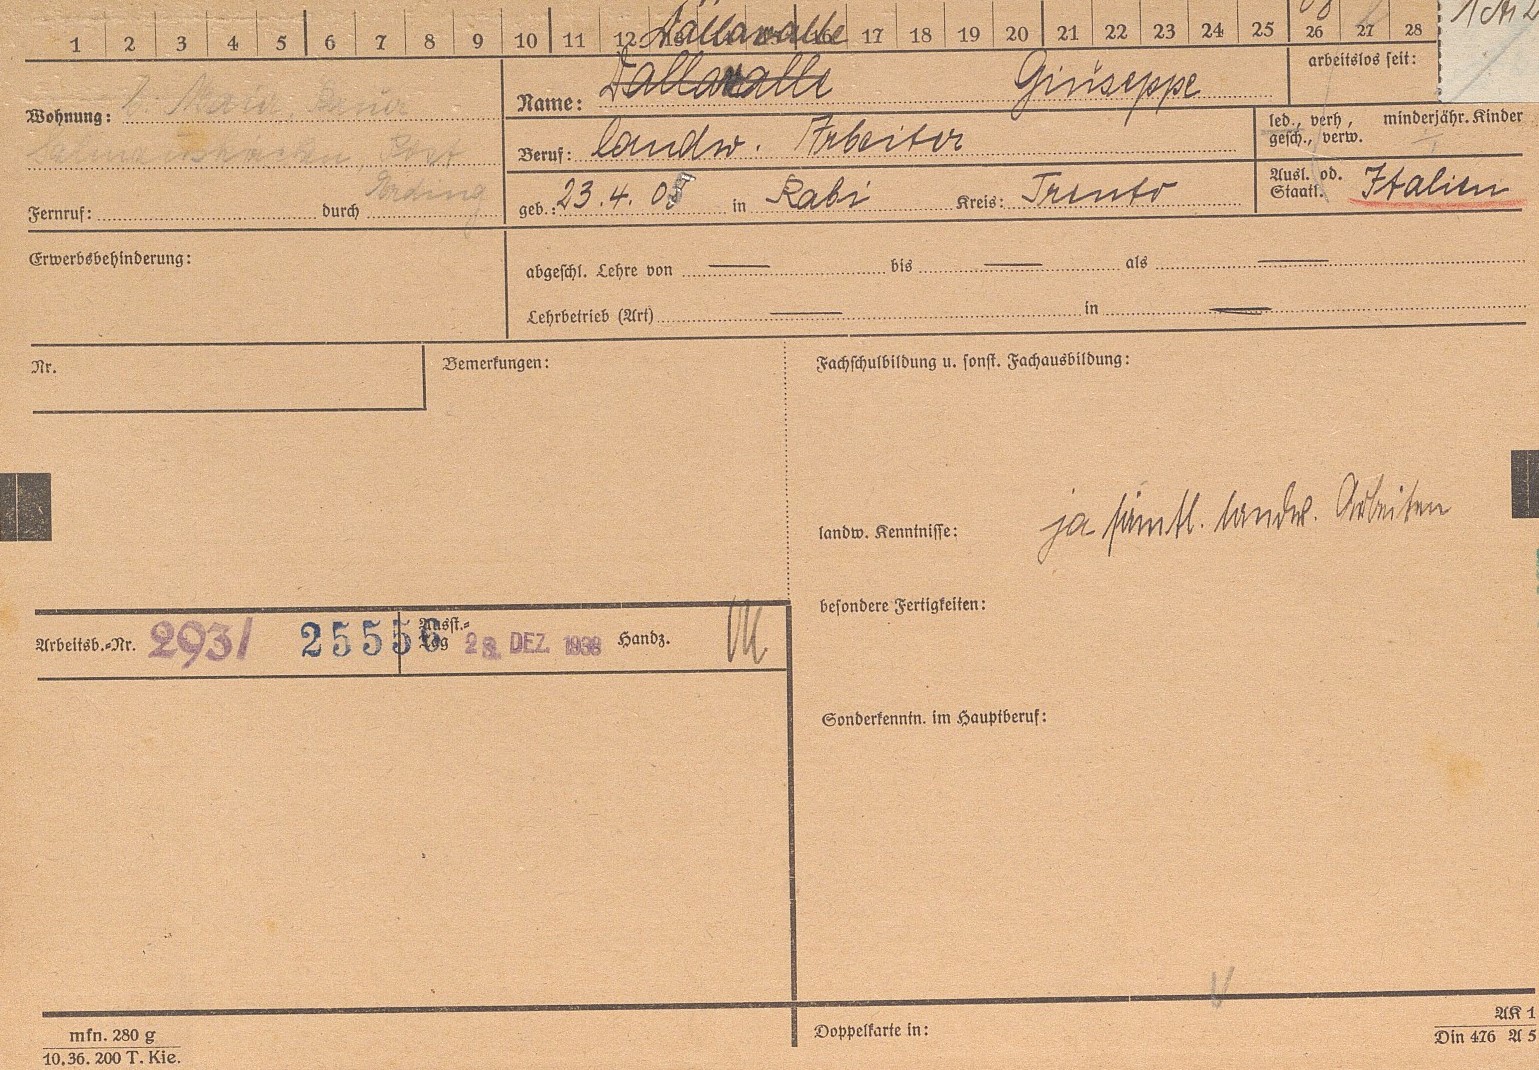 1 2 3 4 5 6 7 8 9 10 11 12 13 16 17 18 19 20 21 22 23 24 25 26 27 28
Dallavalle
arbeitslos seit:
Wohnung:
Name: Dallavalle Giuseppe
Beruf: landw. Arbeiter
led., verh., minderjähr. Kinder
gesch., verw.
Erding
geb.: 23.4.05 in Rabi Kreis: Trento
Ausl. od. Staatl. Italien
Fernruf: durch
Erwerbsbehinderung:
abgeschl. Lehre von — bis — als —
Lehrbetrieb (Art) — in —
Nr.
Bemerkungen:
Fachschulbildung u. sonst. Fachausbildung:
landw. Kenntnisse: ja sämtl. landw. Arbeiten
besondere Fertigkeiten:
Arbeitsb.-Nr. 293/ 25556 Ausst.-Tag 28. DEZ. 1938 Handz.
Sonderkenntn. im Hauptberuf:
Doppelkarte in:
mfn. 280 g
10.36. 200 T. Kie.
AK 1
Din 476 A 5